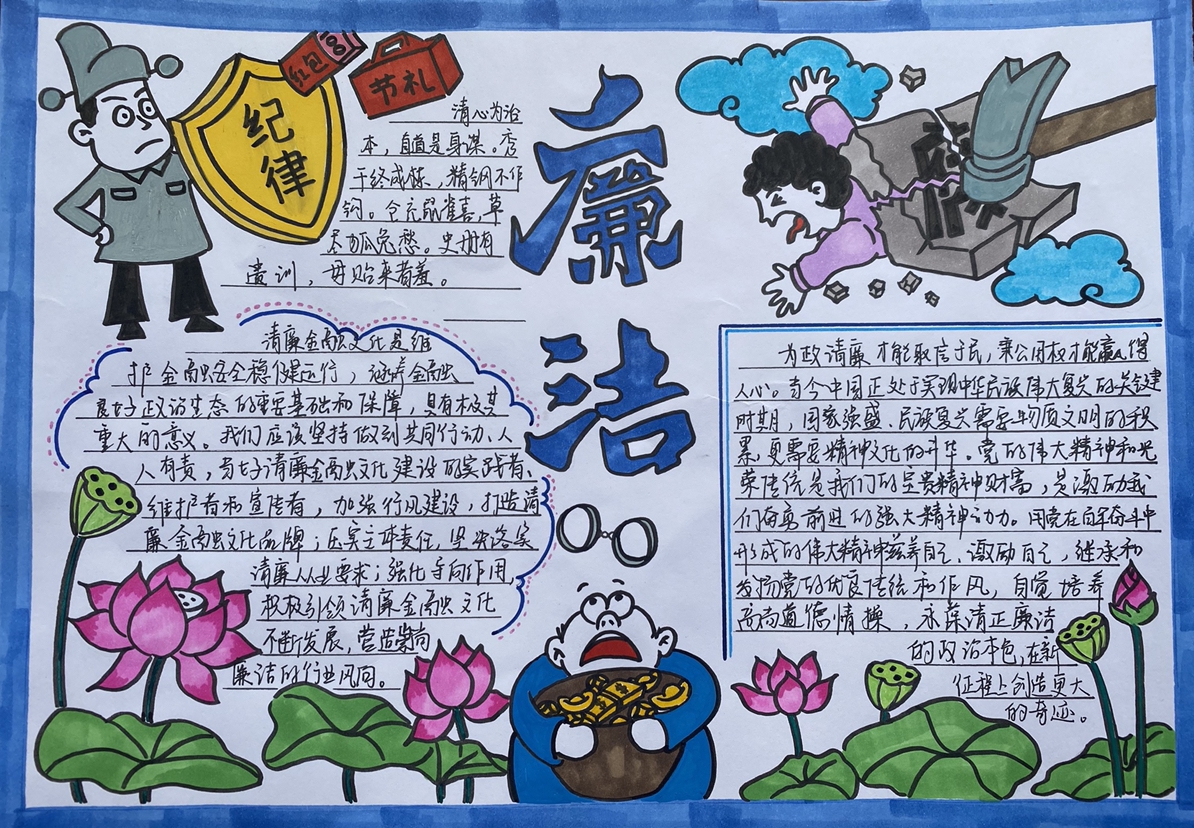 纪律
红包
节礼
廉洁
清心为治
本，直道是身谋。秀
干终成栋，精钢不作
钩。仓充鼠雀喜，草
尽狐兔愁。史册有
遗训，毋贻来者羞。
清廉金融文化是维
护金融安全稳健运行，涵养金融
良好政治生态的重要基础和保障，具有极其
重大的意义。我们应该坚持做到共同行动、人
人有责，当好清廉金融文化建设的实践者、
维护者和宣传者，加强行风建设，打造清
廉金融文化品牌；压实主体责任，坚决落实
清廉从业要求；强化导向作用
积极引领清廉金融文化
不断发展，营造崇尚
廉洁的行业风向。
为政清廉才能取信于民，秉公用权才能赢得
人心。当今中国正处于实现中华民族伟大复兴的关键
时期，国家强盛、民族复兴需要物质文明的积
累，更需要精神文化的升华。党的伟大精神和光
荣传统是我们的宝贵精神财富，是激励我
们奋勇前进的强大精神动力。用党在百年奋斗中
形成的伟大精神滋养自己、激励自己，继承和
发扬党的优良传统和作风，自觉培养
高尚道德情操，永葆清正廉洁
的政治本色，在新
征程上创造更大
的奇迹。